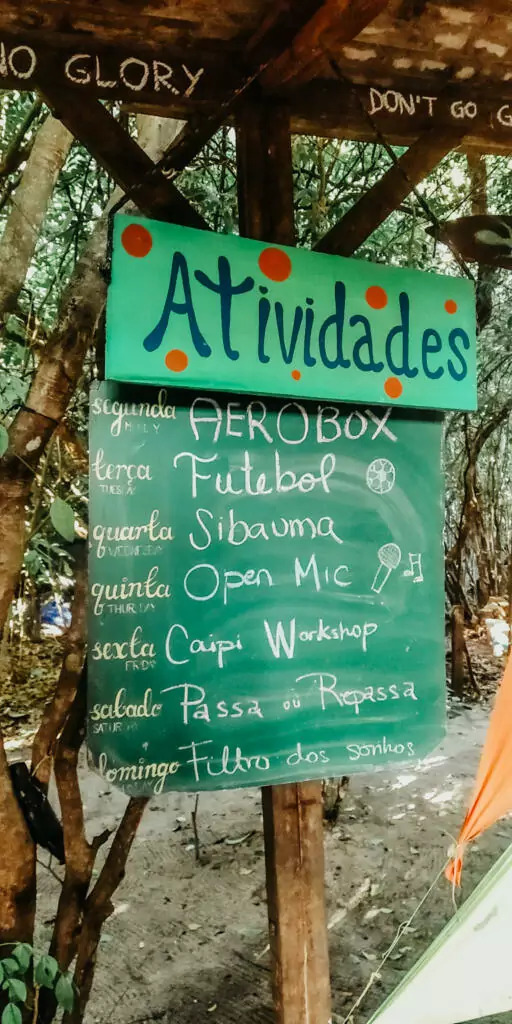 NO GLORY
DON'T GO G
Atividades
segunda AEROBOX
terça Futebol
TUESDAY
quarta Sibauma
WEDNESDAY
quinta Open Mic
THURSDAY
sexta Caipi Workshop
FRIDAY
sabado Passa ou Repassa
SATURDAY
domingo Filtro dos sonhos